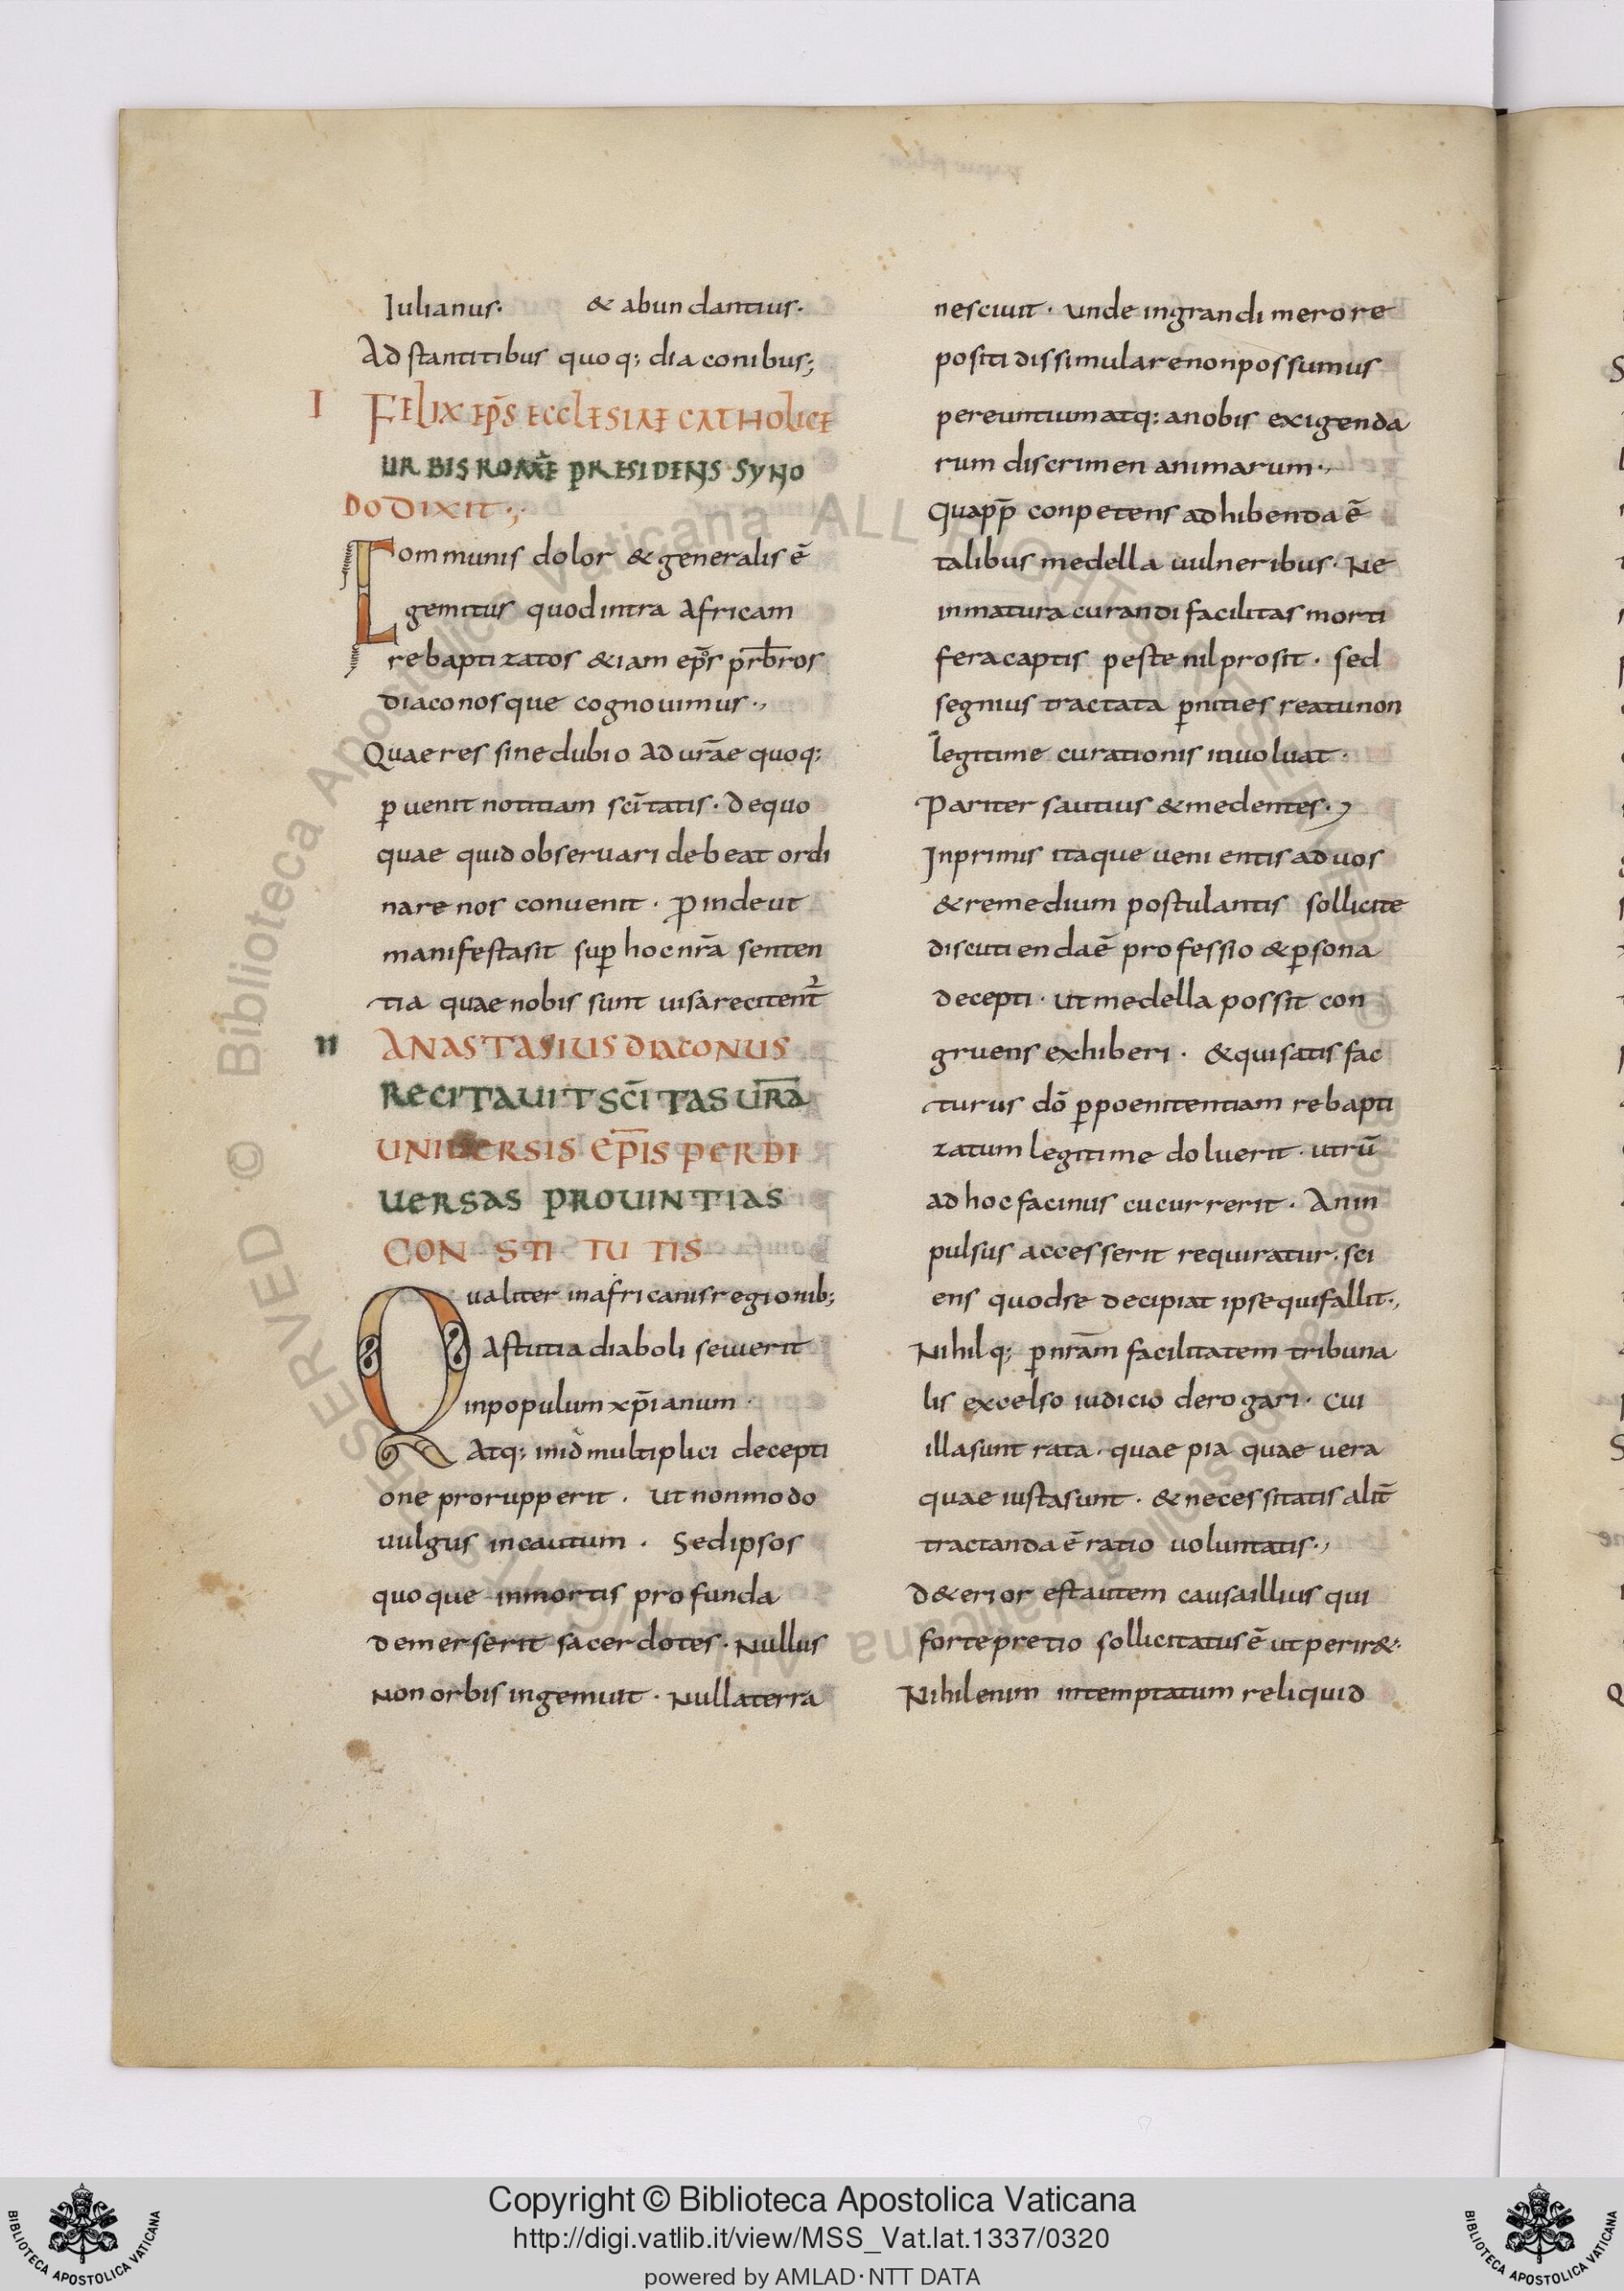 Iulianus· & abundantius·
Ad stantitibus quoq; diaconibus;
I FELIX EP̄S ECCLESIAE CATHOLICE
URBIS ROMAE PRESIDENS SYNO
DO DIXIT·;
Communis dolor & generalis ē
gemitus quod intra Africam
rebaptizatos &iam ep̄s prb̄ros
diaconosque cognouimus·,
Quae res sine dubio ad ur̄ae quoq;
ꝑuenit notitiam sc̄itatis· de quo
quae quid obseruari debeat ordi
nare nos conuenit· ꝓinde ut
manifesta sit suꝑ hoc nr̄a senten
tia quae nobis sunt uisa recitent̄
II ANASTASIUS DIACONUS
RECITAUIT SC̄ITAS UR̄A
UNIUERSIS EP̄IS PER DI
UERSAS PROUINTIAS
CONSTITUTIS
Qualiter in africanis regionib;
Astutia diaboli seuierit
in populum xp̄ianum·
Atq; inid multiplici decepti
one prorupperit· ut non modo
uulgus incautum· Sed ipsos
quoque in mortis profunda
demerserit sacerdotes· Nullus
Non orbis ingemuit· Nulla terra
nesciuit· unde in grandi merore
positi dissimulare non possumus
pereuntium atq; a nobis exigenda
rum discrimen animarum·,
Quapp̄ conpetens adhibenda ē
talibus medella uulneribus· Ne
inmatura curandi facilitas morti
fera captis peste nil prosit· sed
segnius tractata ꝑnities reatu non
legitime curationis inuoluat·
Pariter sautius & medentes·,
Inprimis itaque uenientis ad uos
& remedium postulantis sollicite
discutienda ē professio & ꝑsona
decepti· ut medella possit con
gruens exhiberi· & qui satisfac
turus dō ꝑ poenitentiam rebapti
zatum legitime doluerit· utrū
ad hoc facinus cucurrerit· An in
pulsus accesserit requiratur· sci
ens quod se decipiat ipse qui fallit·,
Nihilq; ꝑ nr̄am facilitatem tribuna
lis excelso iudicio derogari· Cui
illa sunt rata· quae pia quae uera
quae iusta sunt· & necessitatis alit̄
tractanda ē ratio uoluntatis·,
D&erior est autem causa illius qui
forte pretio sollicitatus ē ut perir&·
Nihil enim intemptatum reliquid
Copyright © Biblioteca Apostolica Vaticana
http://digi.vatlib.it/view/MSS_Vat.lat.1337/0320
powered by AMLAD·NTT DATA